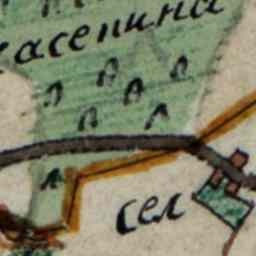 касенина
сел